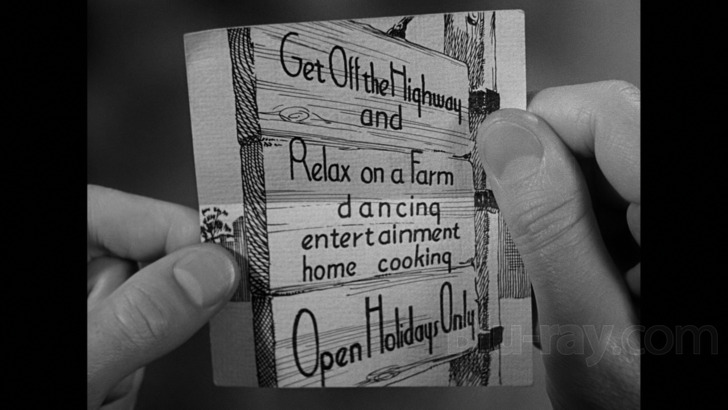 Get Off the Highway
and
Relax on a Farm
dancing
entertainment
home cooking
Open Holidays Only
blu-ray.com